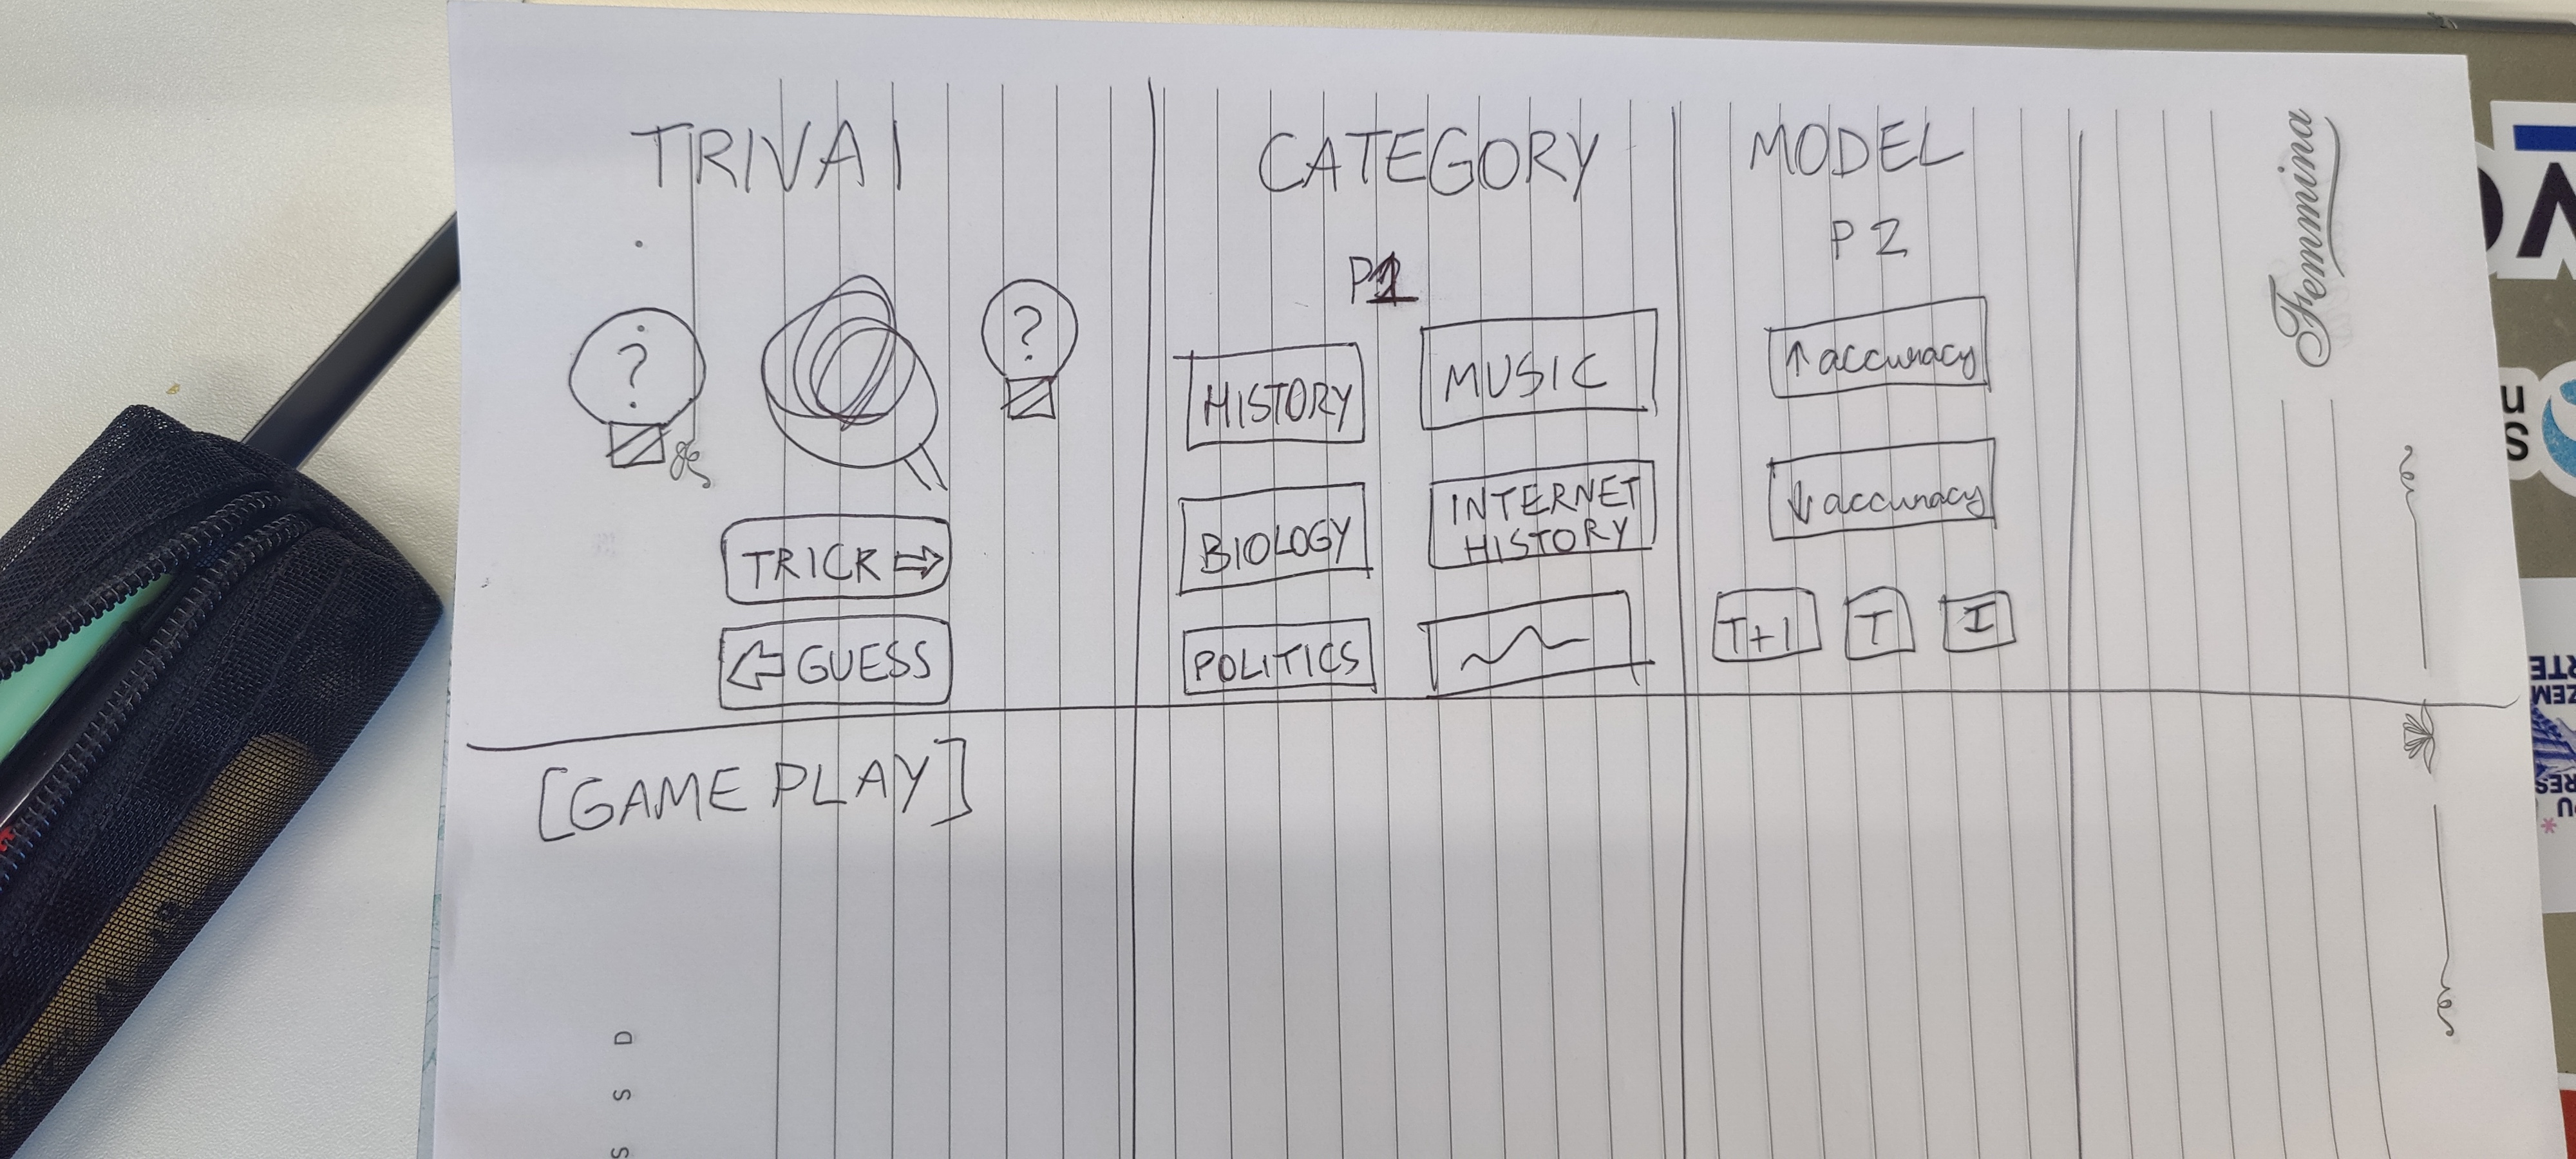 TRIVAI
?
?
TRICK ⇨
⇦ GUESS
CATEGORY
P1
HISTORY
MUSIC
BIOLOGY
INTERNET
HISTORY
POLITICS
MODEL
P2
↑ accuracy
↓ accuracy
T+I
T
I
[GAME PLAY]
Femmina
D
S
S